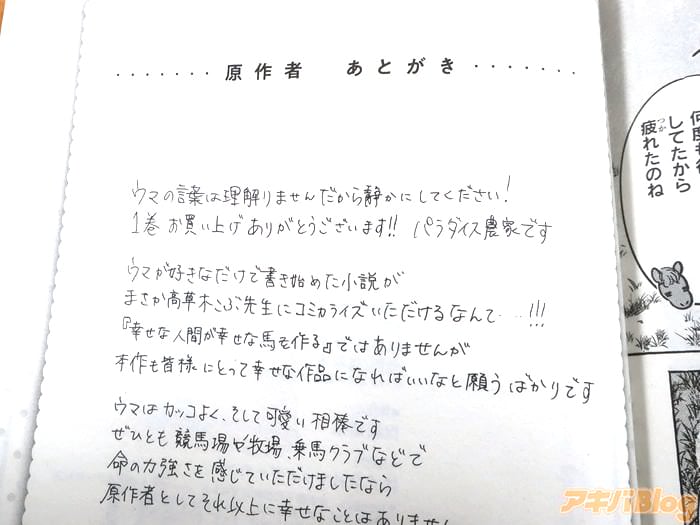 ・・・・・・・原作者　あとがき・・・・・・・
ウマの言葉は理解りませんだから静かにしてください!
1巻お買い上げありがとうございます!! パラダイス農家です
ウマが好きなだけで書き始めた小説が
まさか高草木こぶ先生にコミカライズいただけるなんて……!!!
『幸せな人間が幸せな馬を作る』ではありませんが
本作も皆様にとって幸せな作品になればいいなと願うばかりです
ウマはカッコよく、そして可愛い相棒です
ぜひとも競馬場や牧場、乗馬クラブなどで
命の力強さを感じていただけましたなら
原作者としてそれ以上に幸せなことはありません
してたから
疲れたのね
つか
アキバBlog